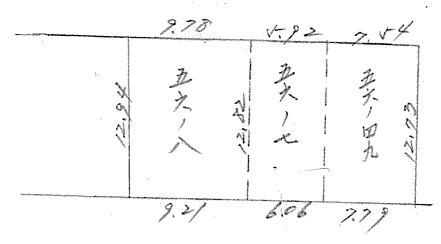 9.78
5.92
7.54
12.94
五六ノ八
12.82
五六ノ七
五六ノ四九
12.73
9.21
6.06
7.79